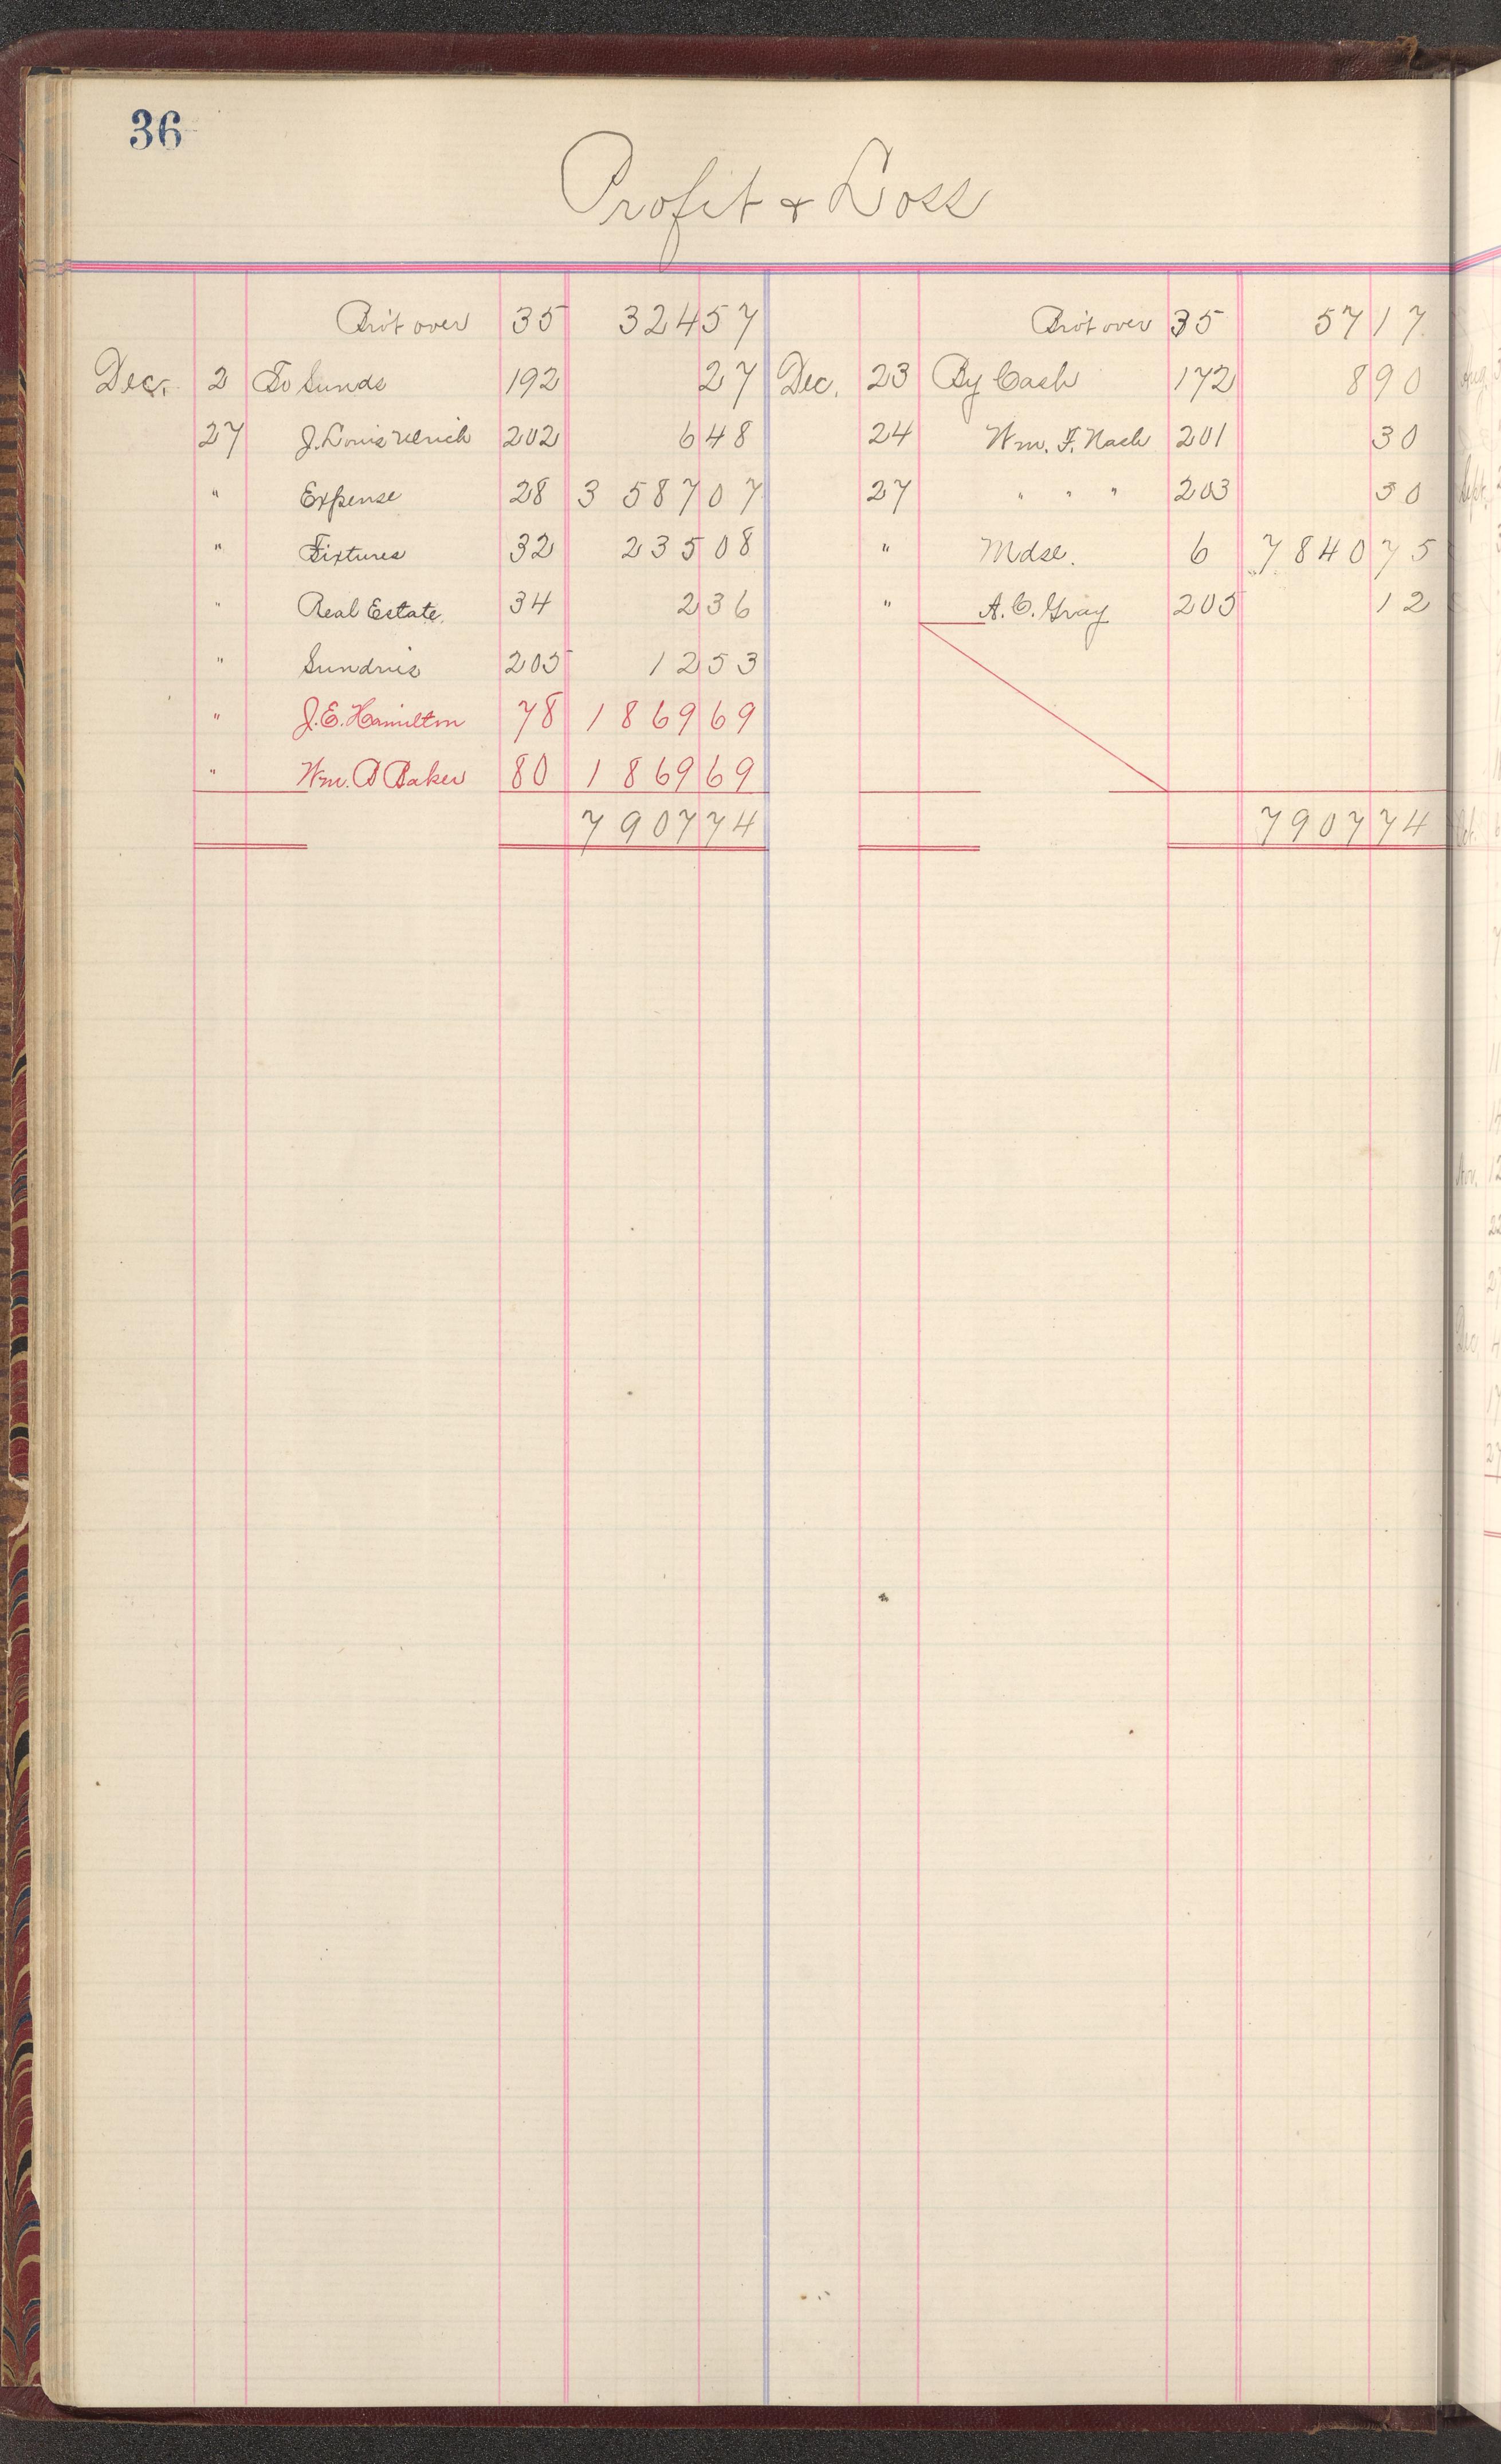 36
Profit & Loss
Bro't over 35 324 57 Bro't over 35 57 17
Dec. 2 To Sunds 192 27 Dec. 23 By Cash 172 8 90
27 J. Louis Ulrich 202 6 48 24 Wm. F. Nash 201 30
" Expense 28 3 587 07 27 " " " 203 50
" Fixtures 32 235 08 " Mdse. 6 7 840 75
" Real Estate 34 2 36 " A. C. Gray 205 12
" Sundries 205 12 53
" J. E. Hamilton 78 1 869 69
" Wm. D Baker 80 1 869 69
7 907 74 7 907 74